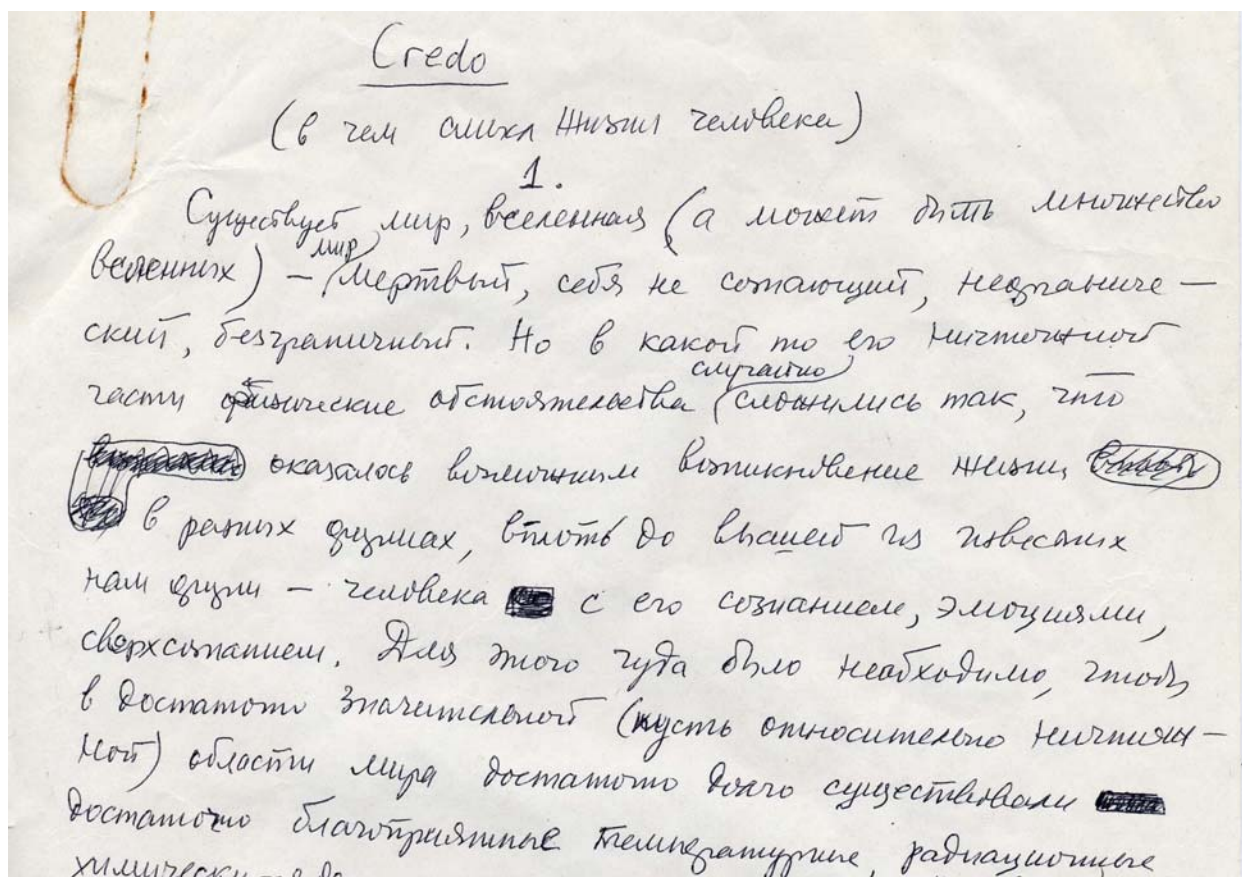 Credo
(в чем смысл жизни человека)
1.
Существует мир, вселенная (а может быть множество
вселенных) – мир мертвый, себя не сознающий, неорганиче–
ский, безграничный. Но в какой то его ничтожной
части физические обстоятельства случайно сложились так, что
оказалось возможным возникновение жизни
в разных формах, вплоть до высшей из известных
нам форм – человека с его сознанием, эмоциями,
сверхсознанием. Для этого чуда было необходимо, чтобы
в достаточно значительной (пусть относительно ничтож–
ной) области мира достаточно долго существовали
достаточно благоприятные температурные, радиационные